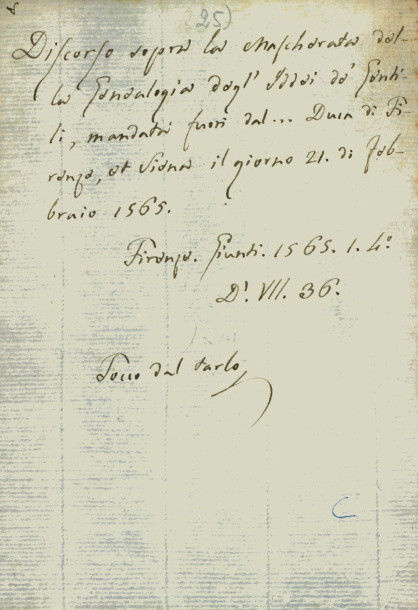 25)
Discorso sopra la Mascherata del-
la Genealogia degl' Iddei de' Genti-
li, mandata fuori dal... Duca di Fi-
renze, et Siena il giorno 21. di Feb-
braio 1565.
Firenze. Giunti. 1565. 1. 4º
D'. VII. 36.
Tocco dal tarlo
C